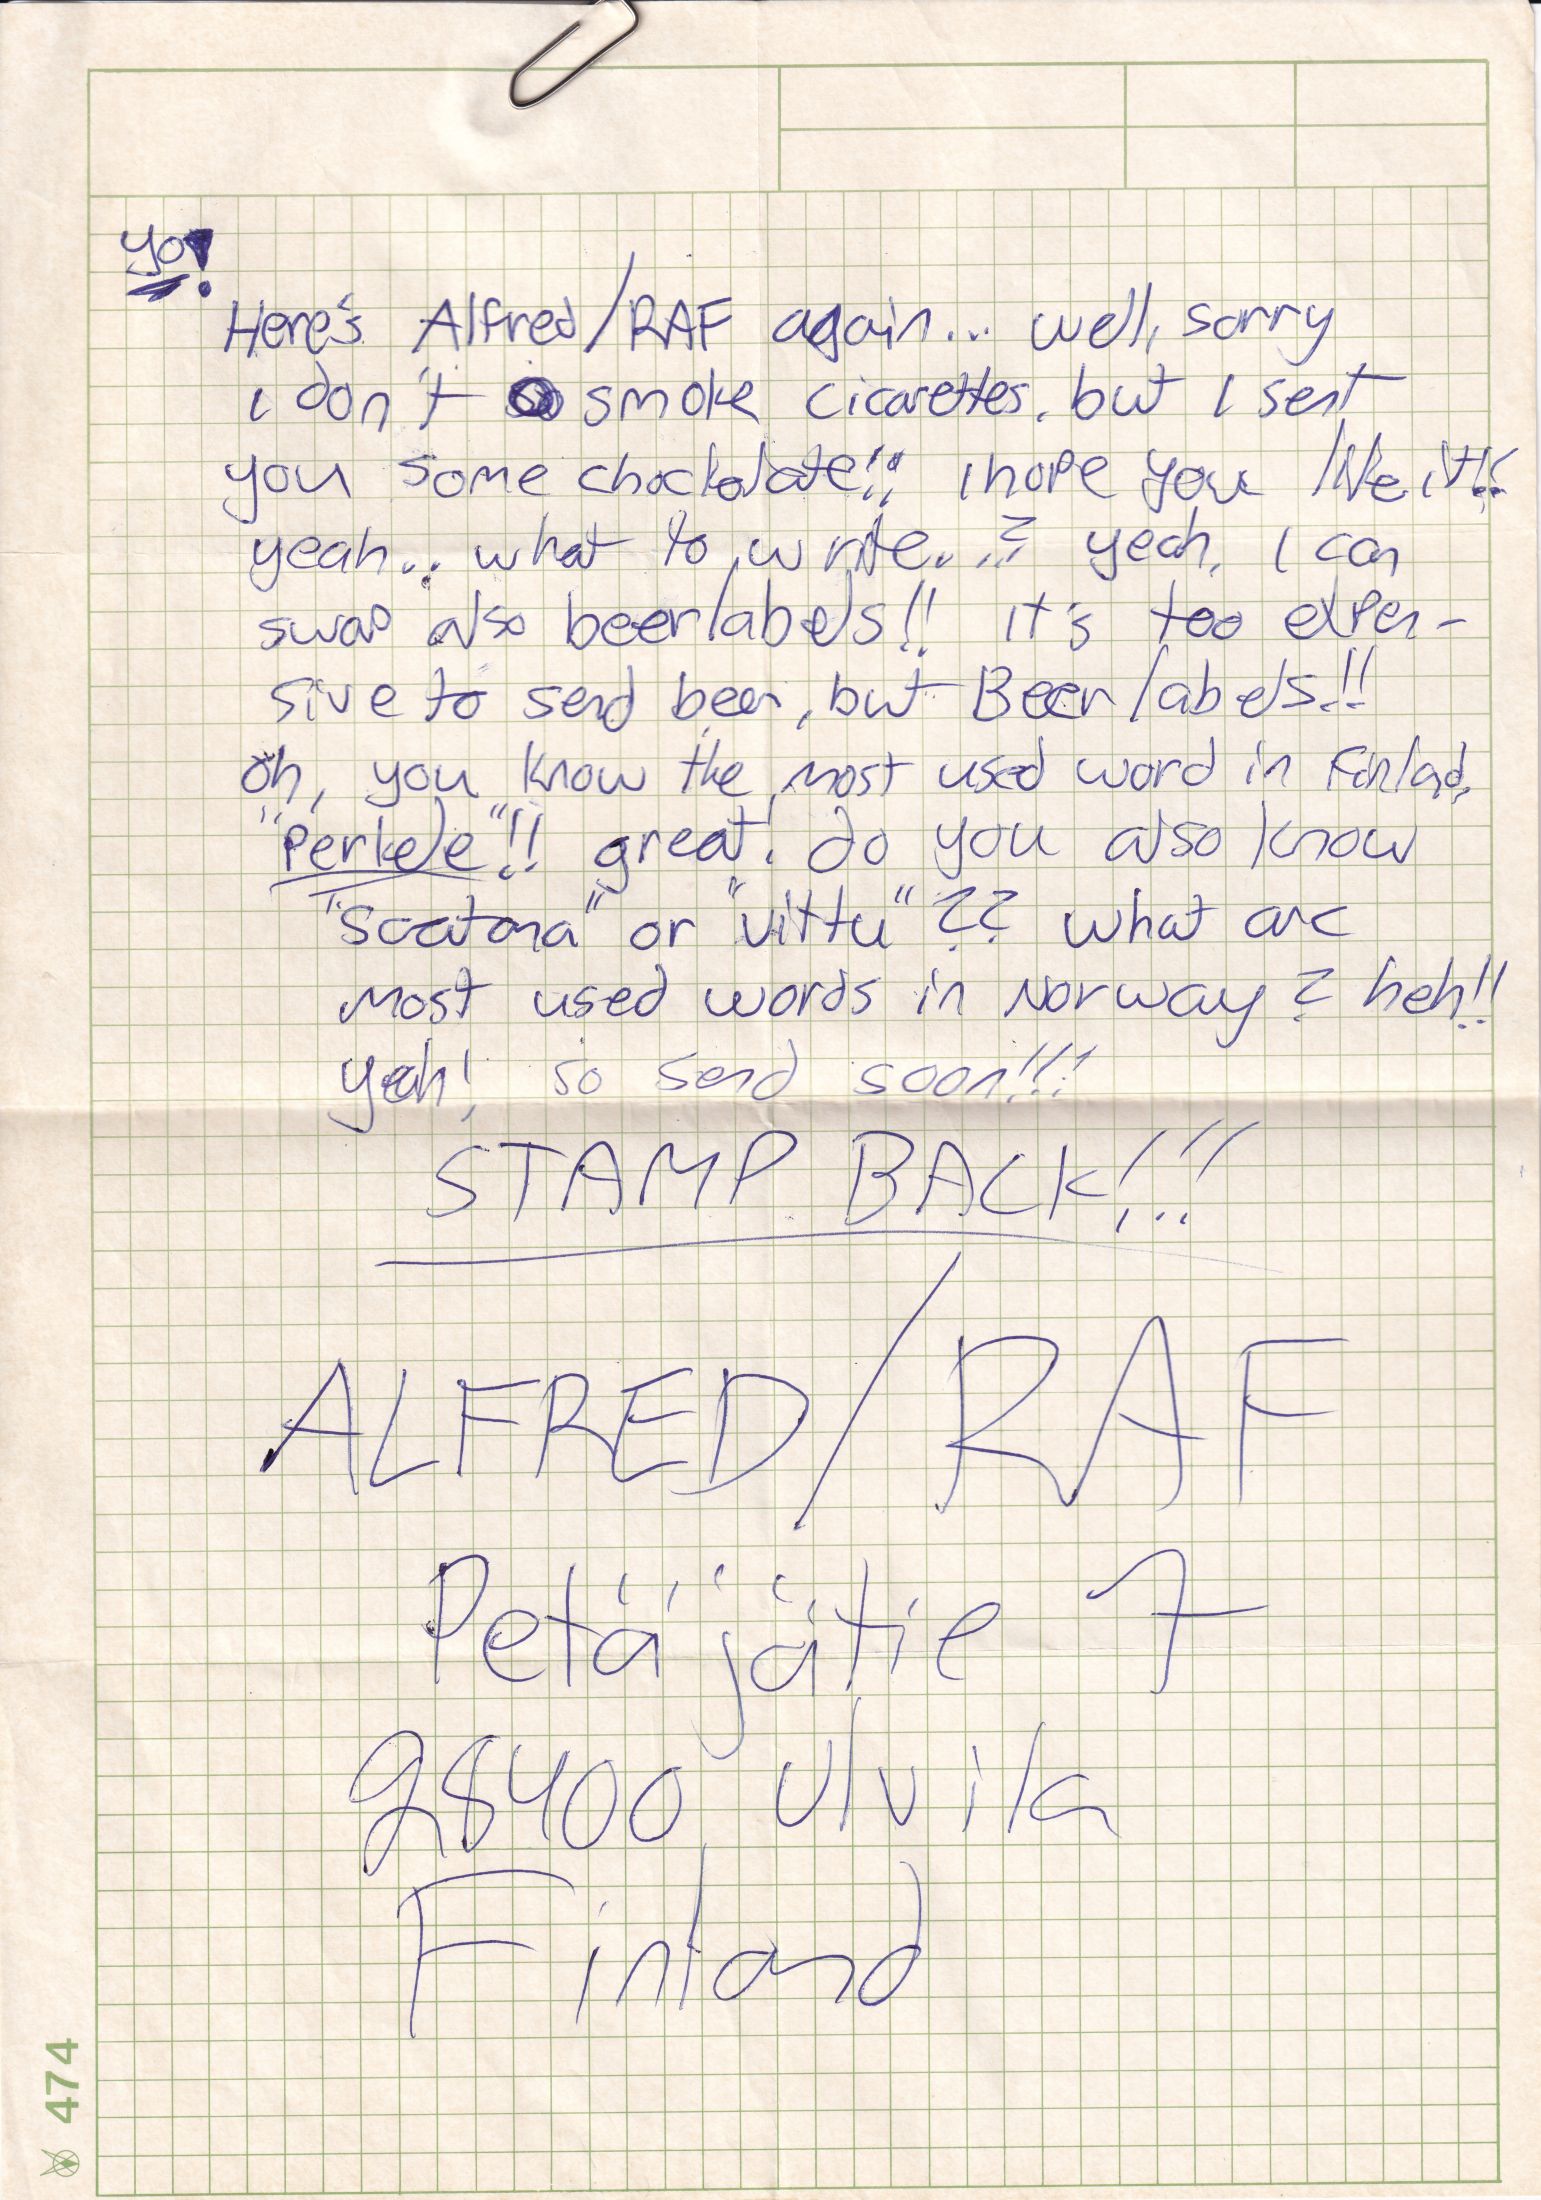 yo!
Here's Alfred/RAF again... well, sorry
i don't smoke cicarettes, but I sent
you some chockolate!! i hope you like it!!
yeah.. what to write...? yeah, I can
swap also beerlabels!! it's too expen-
sive to send beer, but Beer labels!!
Oh, you know the most used word in Finlad,
"Perkele"!! great! do you also know
"Saatana" or "Vittu"?? what are
most used words in Norway? heh!!
yeah! so send soon!!!
STAMP BACK!!!
ALFRED/RAF
Petäjätie 7
28400 Ulvila
Finland
474